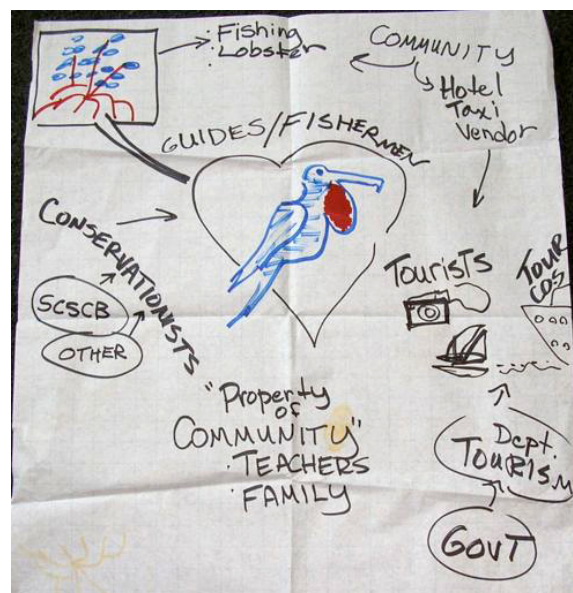 · Fishing
· Lobster
COMMUNITY
Hotel
Taxi
Vendor
GUIDES/FISHERMEN
CONSERVATIONISTS
SCSCB
OTHER
TOURISTS
TOUR
COS
"Property
of
COMMUNITY"
· TEACHERS
· FAMILY
Dept.
TOURISM
GOVT